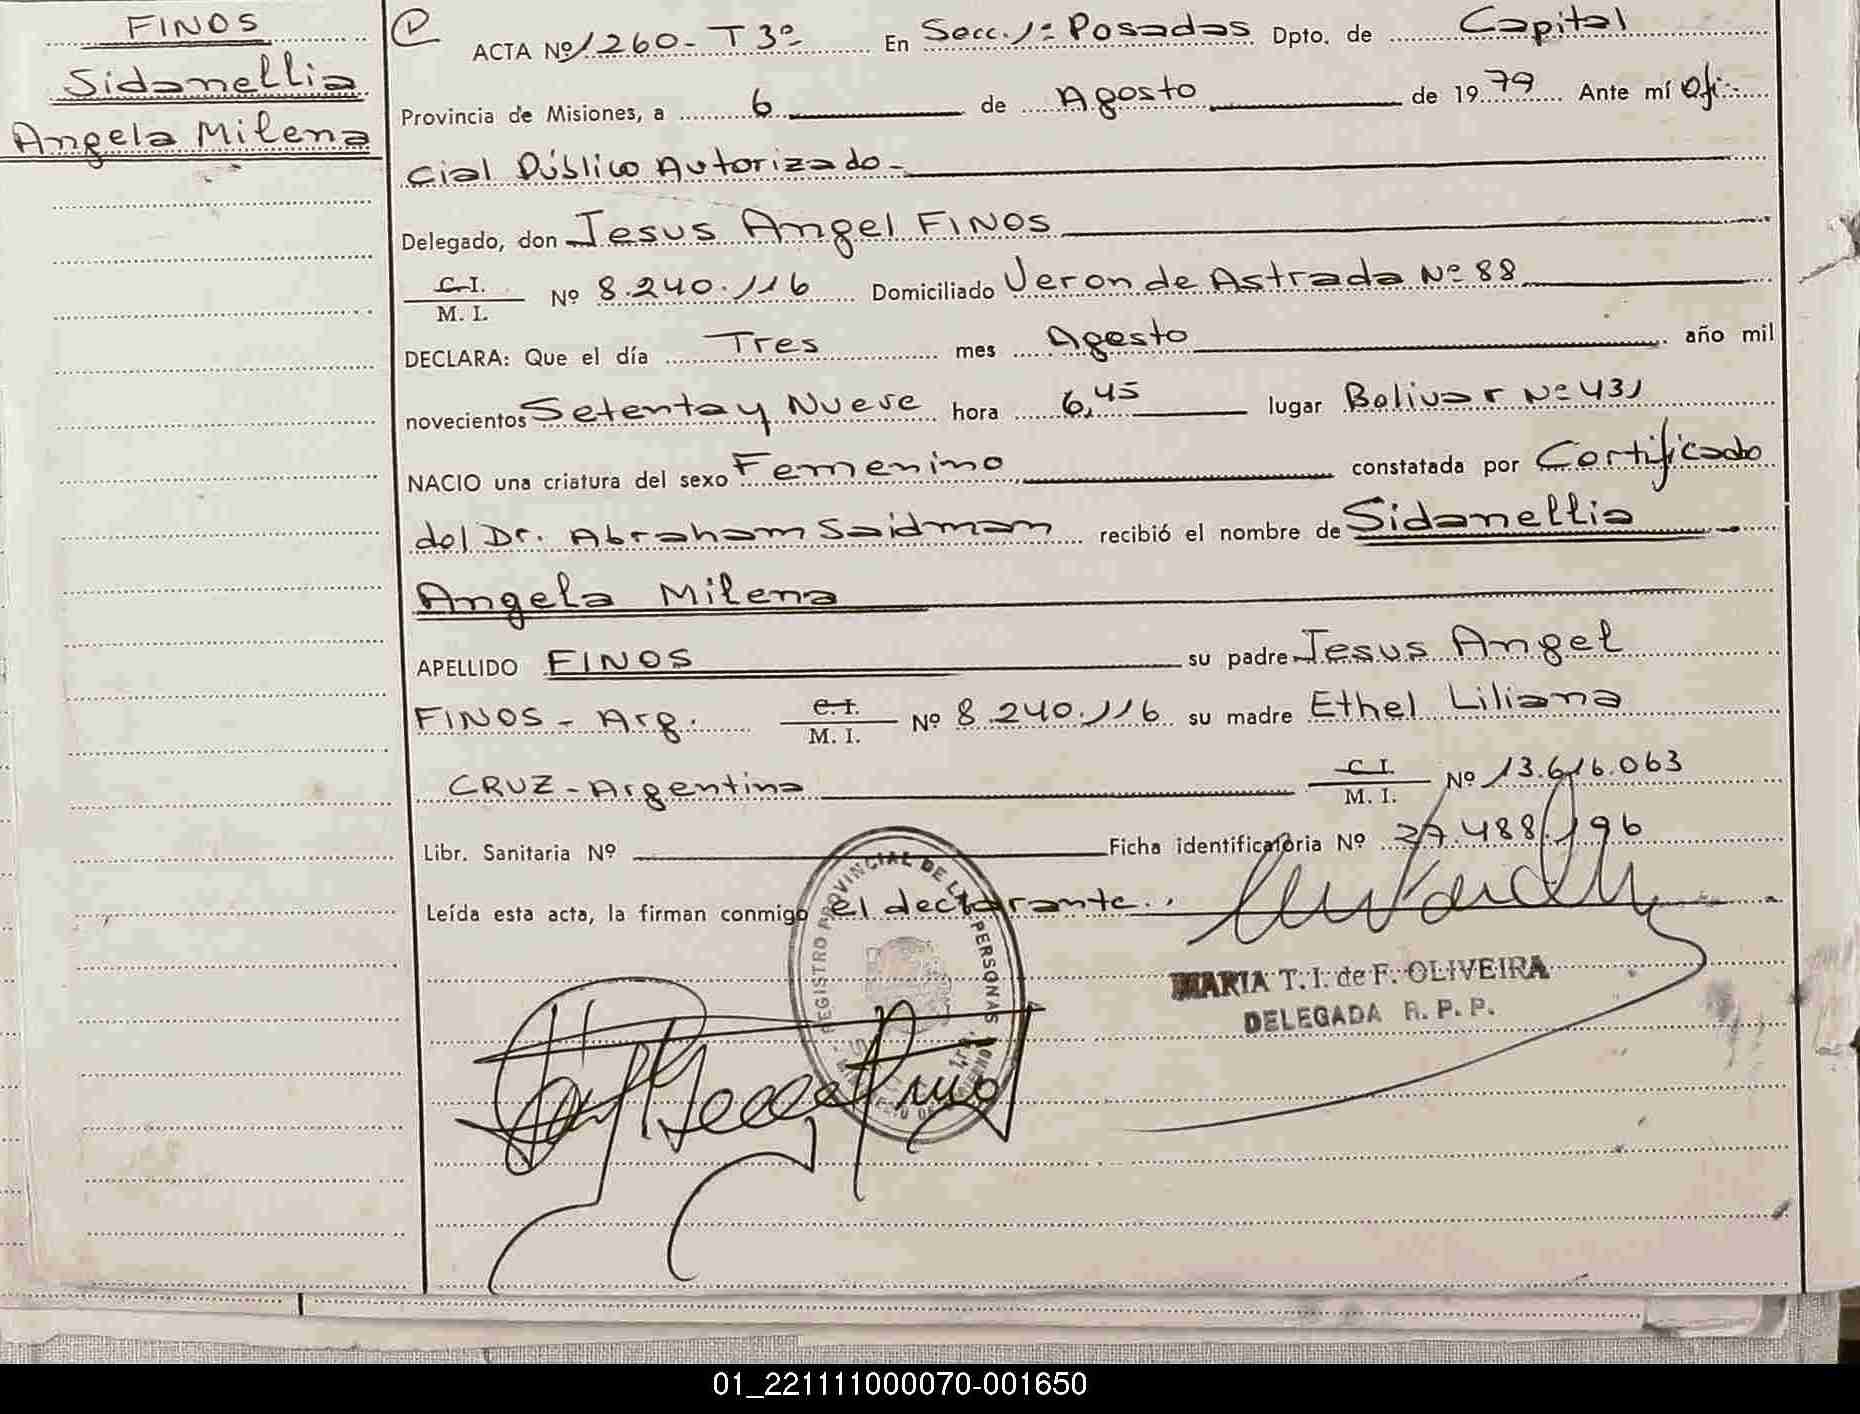 FINOS
Sidanellia
Angela Milena
ACTA Nº 1260 - T 3º En Secc. 1ª Posadas Dpto. de Capital
Provincia de Misiones, a 6 de Agosto de 1979 Ante mí Ofi-
cial Público Autorizado -
Delegado, don Jesus Angel FINOS
C.I. / M. I. Nº 8.240.116 Domiciliado Veron de Astrada Nº 88
DECLARA: Que el día Tres mes Agosto año mil
novecientos Setenta y Nueve hora 6,45 lugar Bolivar Nº 431
NACIO una criatura del sexo Femenino constatada por Certificado
del Dr. Abraham Saidman recibió el nombre de Sidanellia
Angela Milena
APELLIDO FINOS su padre Jesus Angel
FINOS - Arg. C.I. / M. I. Nº 8.240.116 su madre Ethel Liliana
CRUZ - Argentina C.I. / M. I. Nº 13.616.063
Libr. Sanitaria Nº Ficha identificatoria Nº 27.488.196
Leída esta acta, la firman conmigo el declarante.
REGISTRO PROVINCIAL DE LAS PERSONAS
MARIA T. I. de F. OLIVEIRA
DELEGADA R. P. P.
01_221111000070-001650